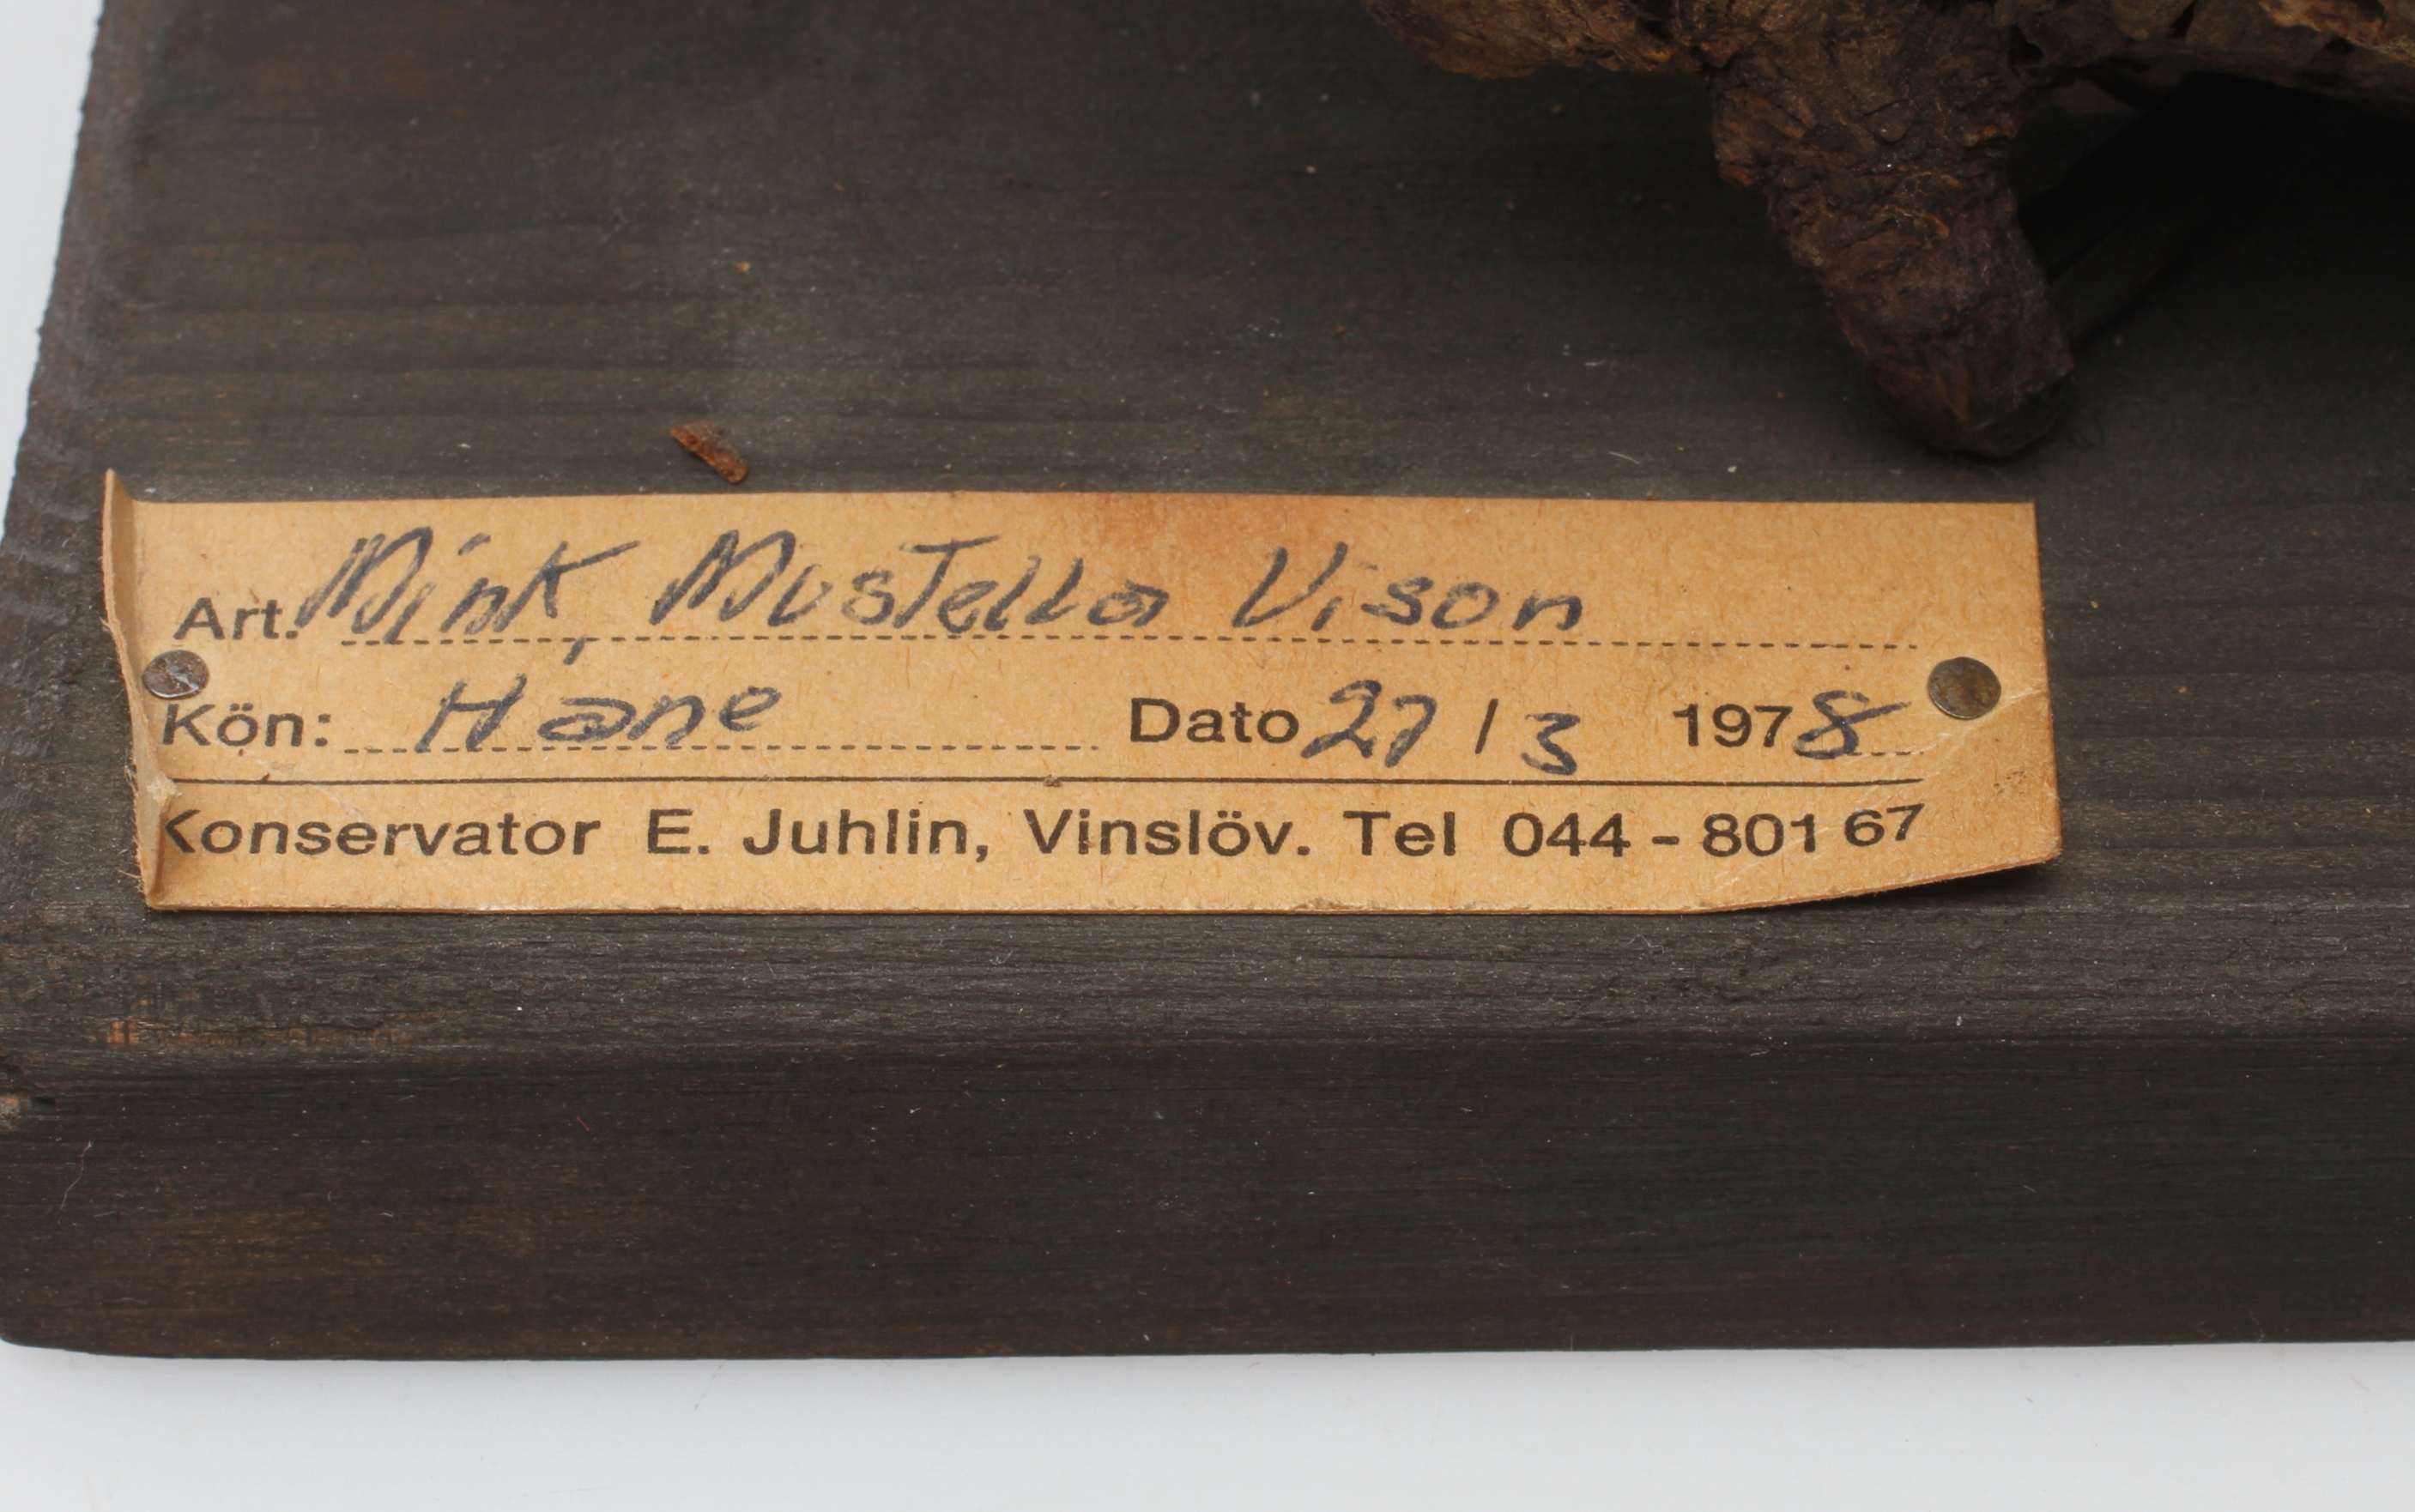 Art. Mink, Mustella Vison
Kön: Hane Dato 27 / 3 1978
Konservator E. Juhlin, Vinslöv. Tel 044 - 801 67